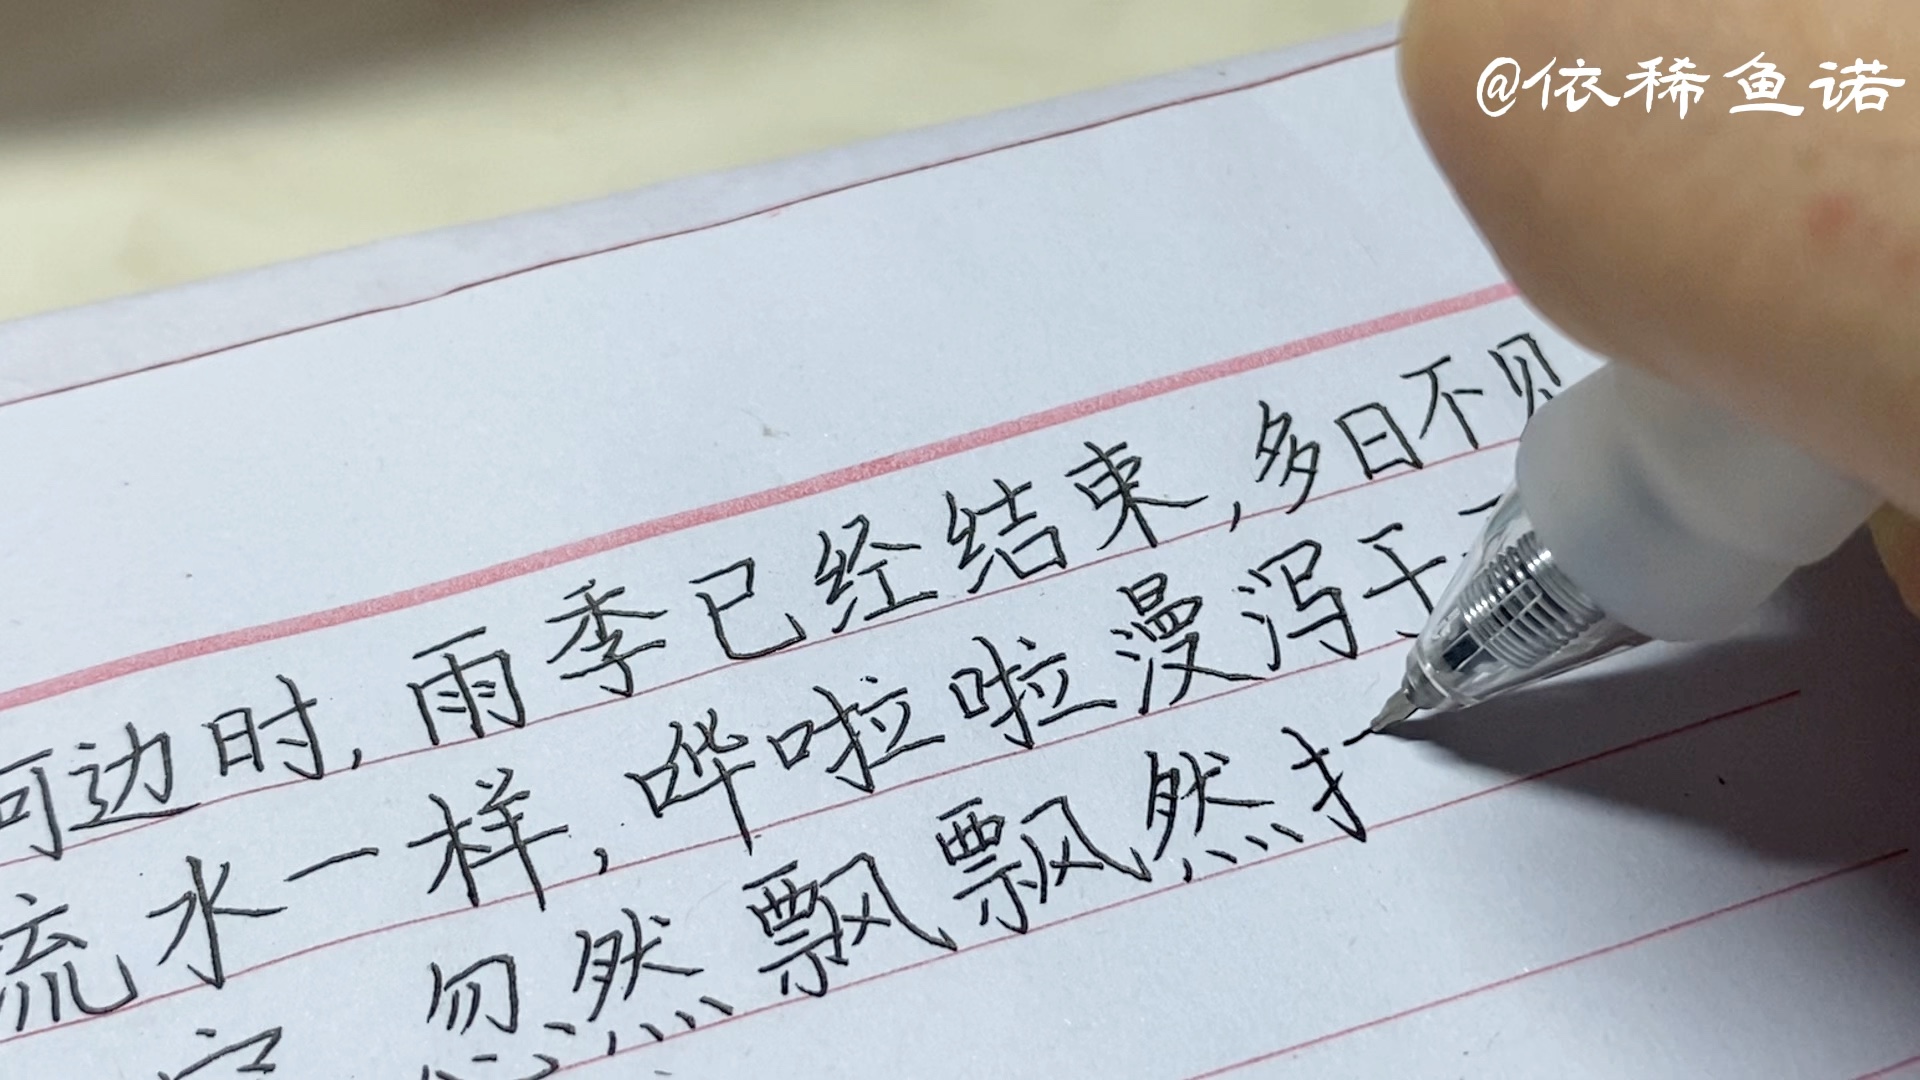 @依稀鱼诺
河边时,雨季已经结束,多日不见
流水一样,哗啦啦漫泻于
忽然飘飘然